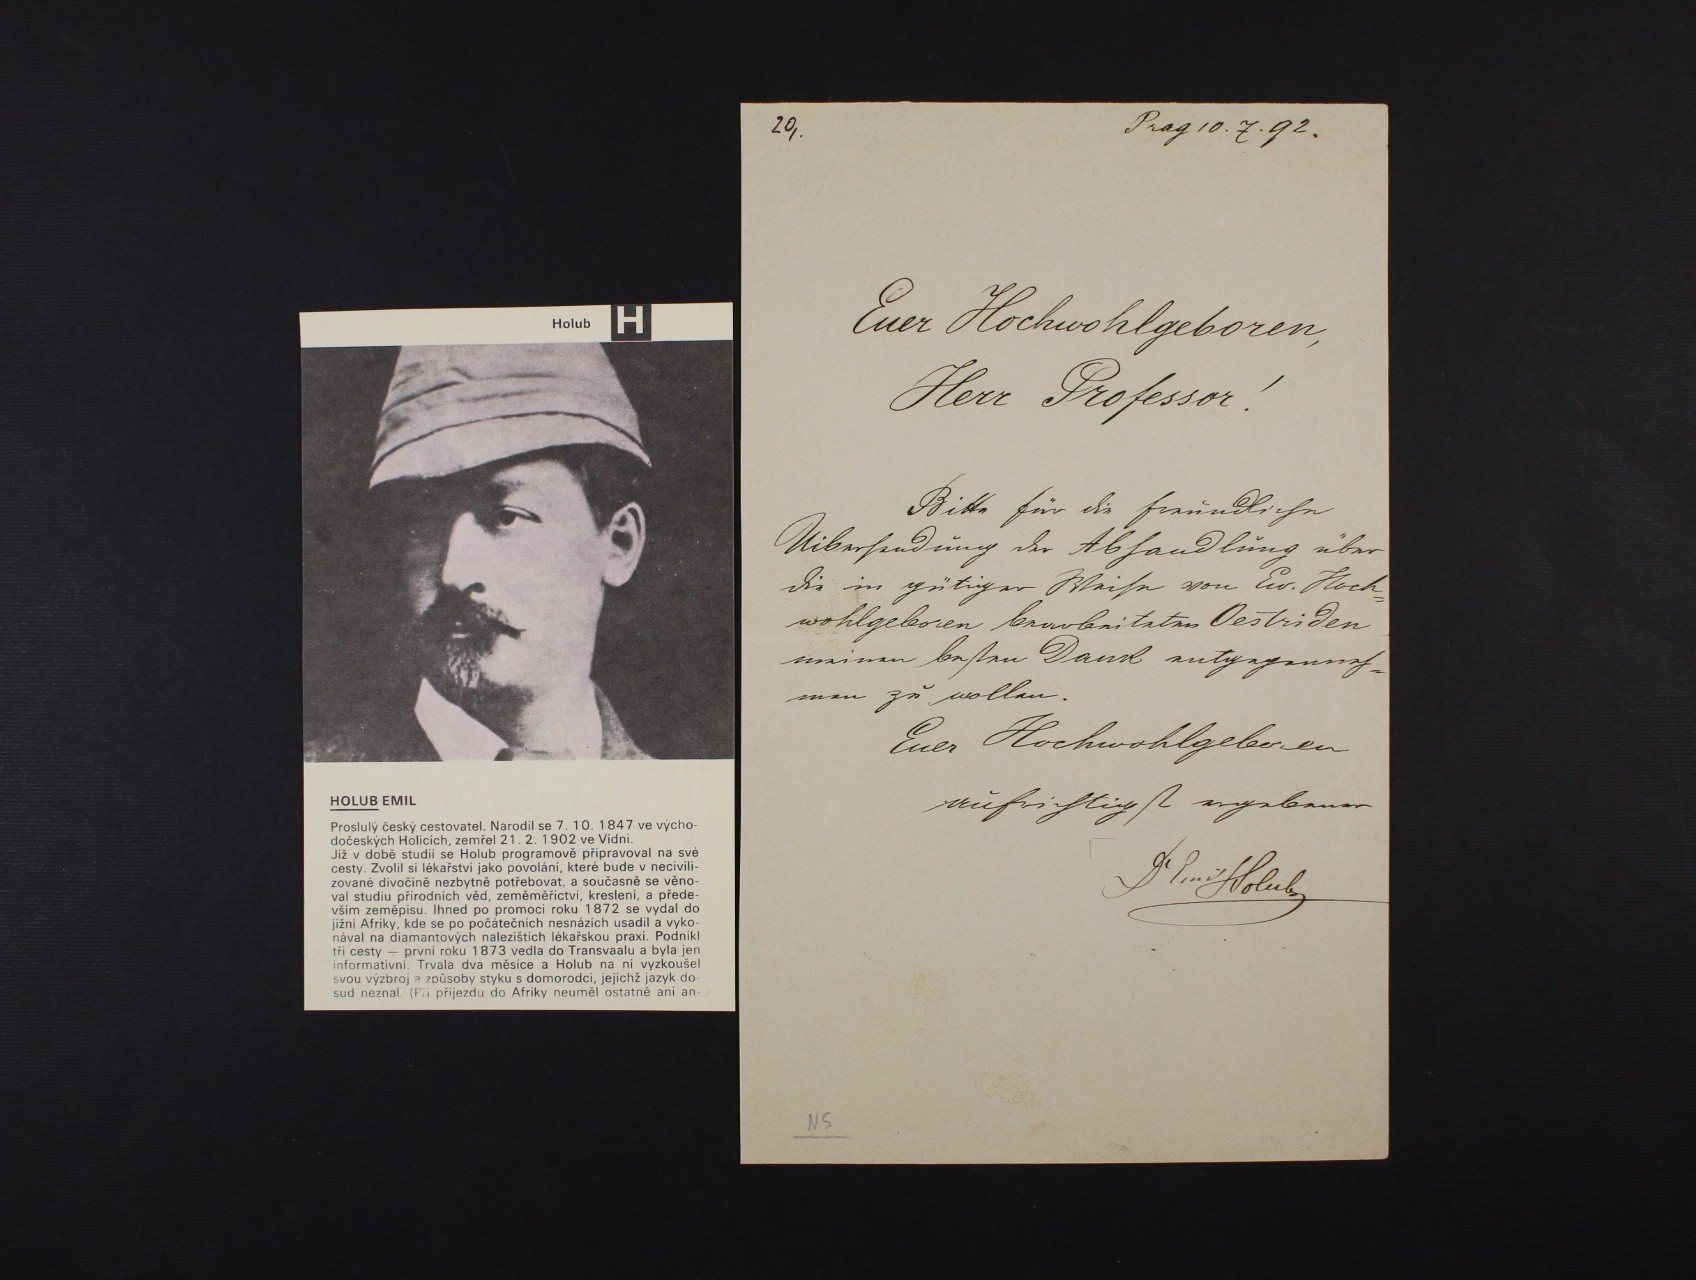 Holub H
HOLUB EMIL
Proslulý český cestovatel. Narodil se 7. 10. 1847 ve výcho-
dočeských Holicích, zemřel 21. 2. 1902 ve Vídni.
Již v době studií se Holub programově připravoval na své
cesty. Zvolil si lékařství jako povolání, které bude v necivili-
zované divočině nezbytně potřebovat, a současně se věno-
val studiu přírodních věd, zeměměřictví, kreslení, a přede-
vším zeměpisu. Ihned po promoci roku 1872 se vydal do
jižní Afriky, kde se po počátečních nesnázích usadil a vyko-
nával na diamantových nalezištích lékařskou praxi. Podnikl
tři cesty — první roku 1873 vedla do Transvaalu a byla jen
informativní. Trvala dva měsíce a Holub na ní vyzkoušel
svou výzbroj a způsoby styku s domorodci, jejichž jazyk do-
sud neznal. (Při příjezdu do Afriky neuměl ostatně ani an-
20,. Prag 10. 7. 92.
Euer Hochwohlgeboren,
Herr Professor!
Bitte für die freundliche
Uibersendung der Abhandlung über
die in gütiger Weise von Ew. Hoch=
wohlgeboren bearbeiteten Oestriden
meinen besten Dank entgegenneh=
men zu wollen.
Euer Hochwohlgeboren
aufrichtigst ergebener
Dr Emil Holub
NS